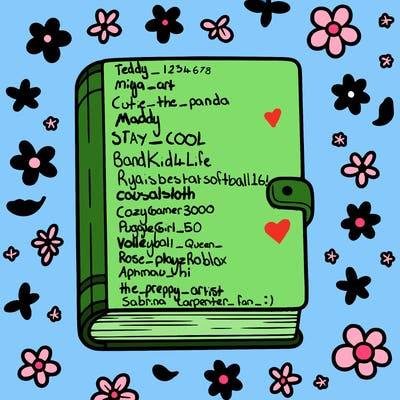 Teddy_1234678
miya_art
Cutie_the_panda
Maddy
STAY_COOL
BandKid4Life
Ryaisbestatsoftball16!
causalsloth
CozyGamer3000
PuggleGirl_50
Volleyball_Queen_
Rose_playzRoblox
Aphmau_Uhi
the_preppy_artist
Sabrina Carpenter_fan_:)